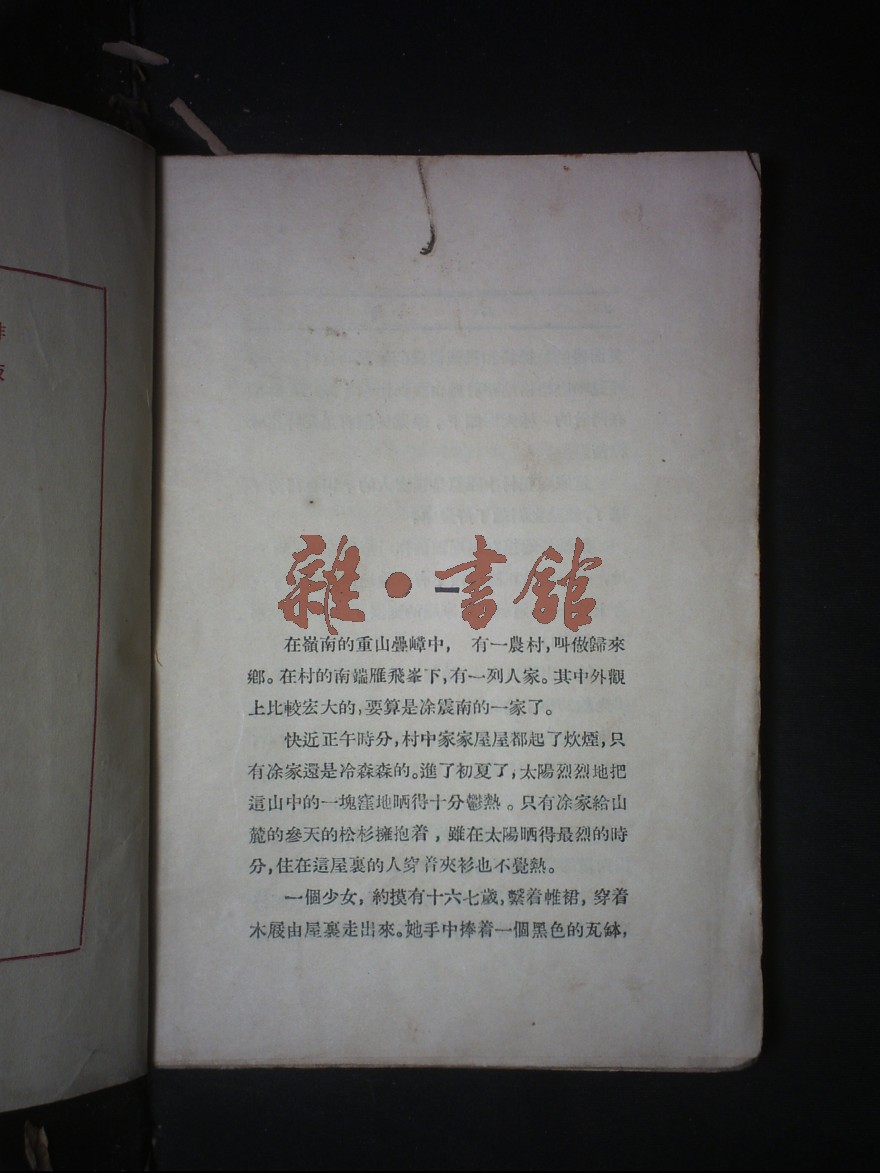 雜•書館
一
在嶺南的重山疊嶂中， 有一農村，叫做歸來
鄉。在村的南端雁飛峯下，有一列人家。其中外觀
上比較宏大的，要算是凃震南的一家了。
快近正午時分，村中家家屋屋都起了炊煙，只
有凃家還是冷森森的。進了初夏了，太陽烈烈地把
這山中的一塊窪地晒得十分鬱熱。只有凃家給山
麓的參天的松杉擁抱着，雖在太陽晒得最烈的時
分，住在這屋裏的人穿着夾衫也不覺熱。
一個少女，約摸有十六七歲，繫着帷裙，穿着
木屐由屋裏走出來。她手中捧着一個黑色的瓦缽，